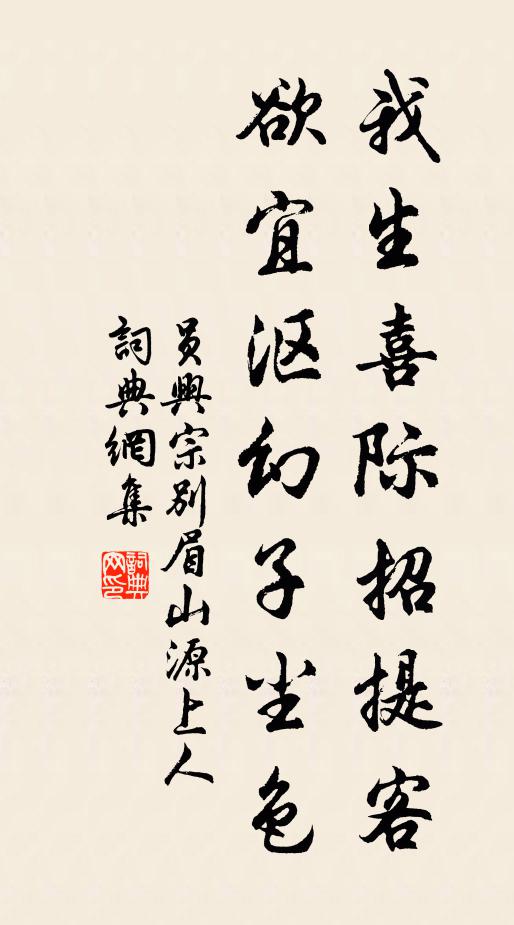 我生喜际招提客
欲宜沤幻子尘色
員興宗别眉山源上人
詞典網集
詞典网印